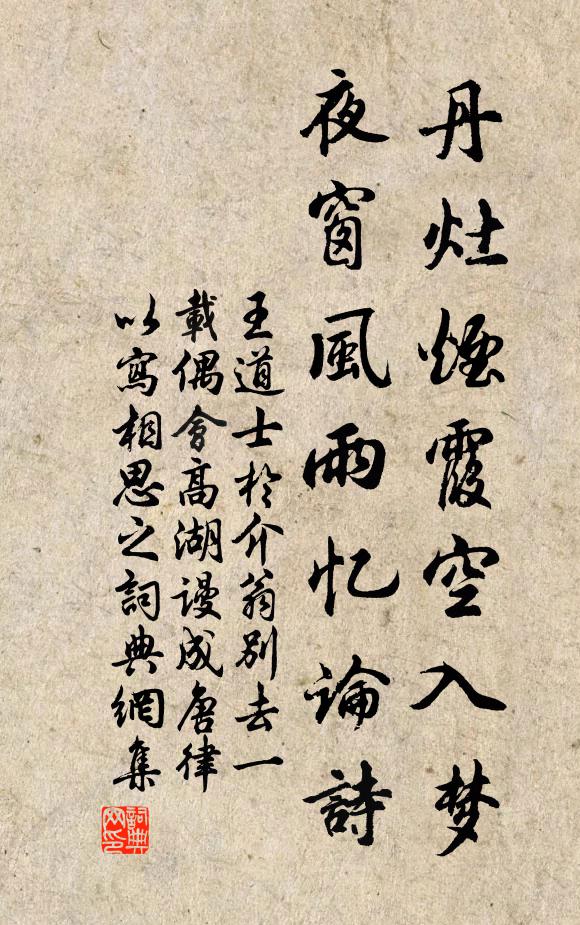 丹灶煙霞空入梦
夜窗風雨忆論詩
王道士於介翁別去一
載偶會高湖謾成唐律
以寫相思之詞典網集
詞典网印